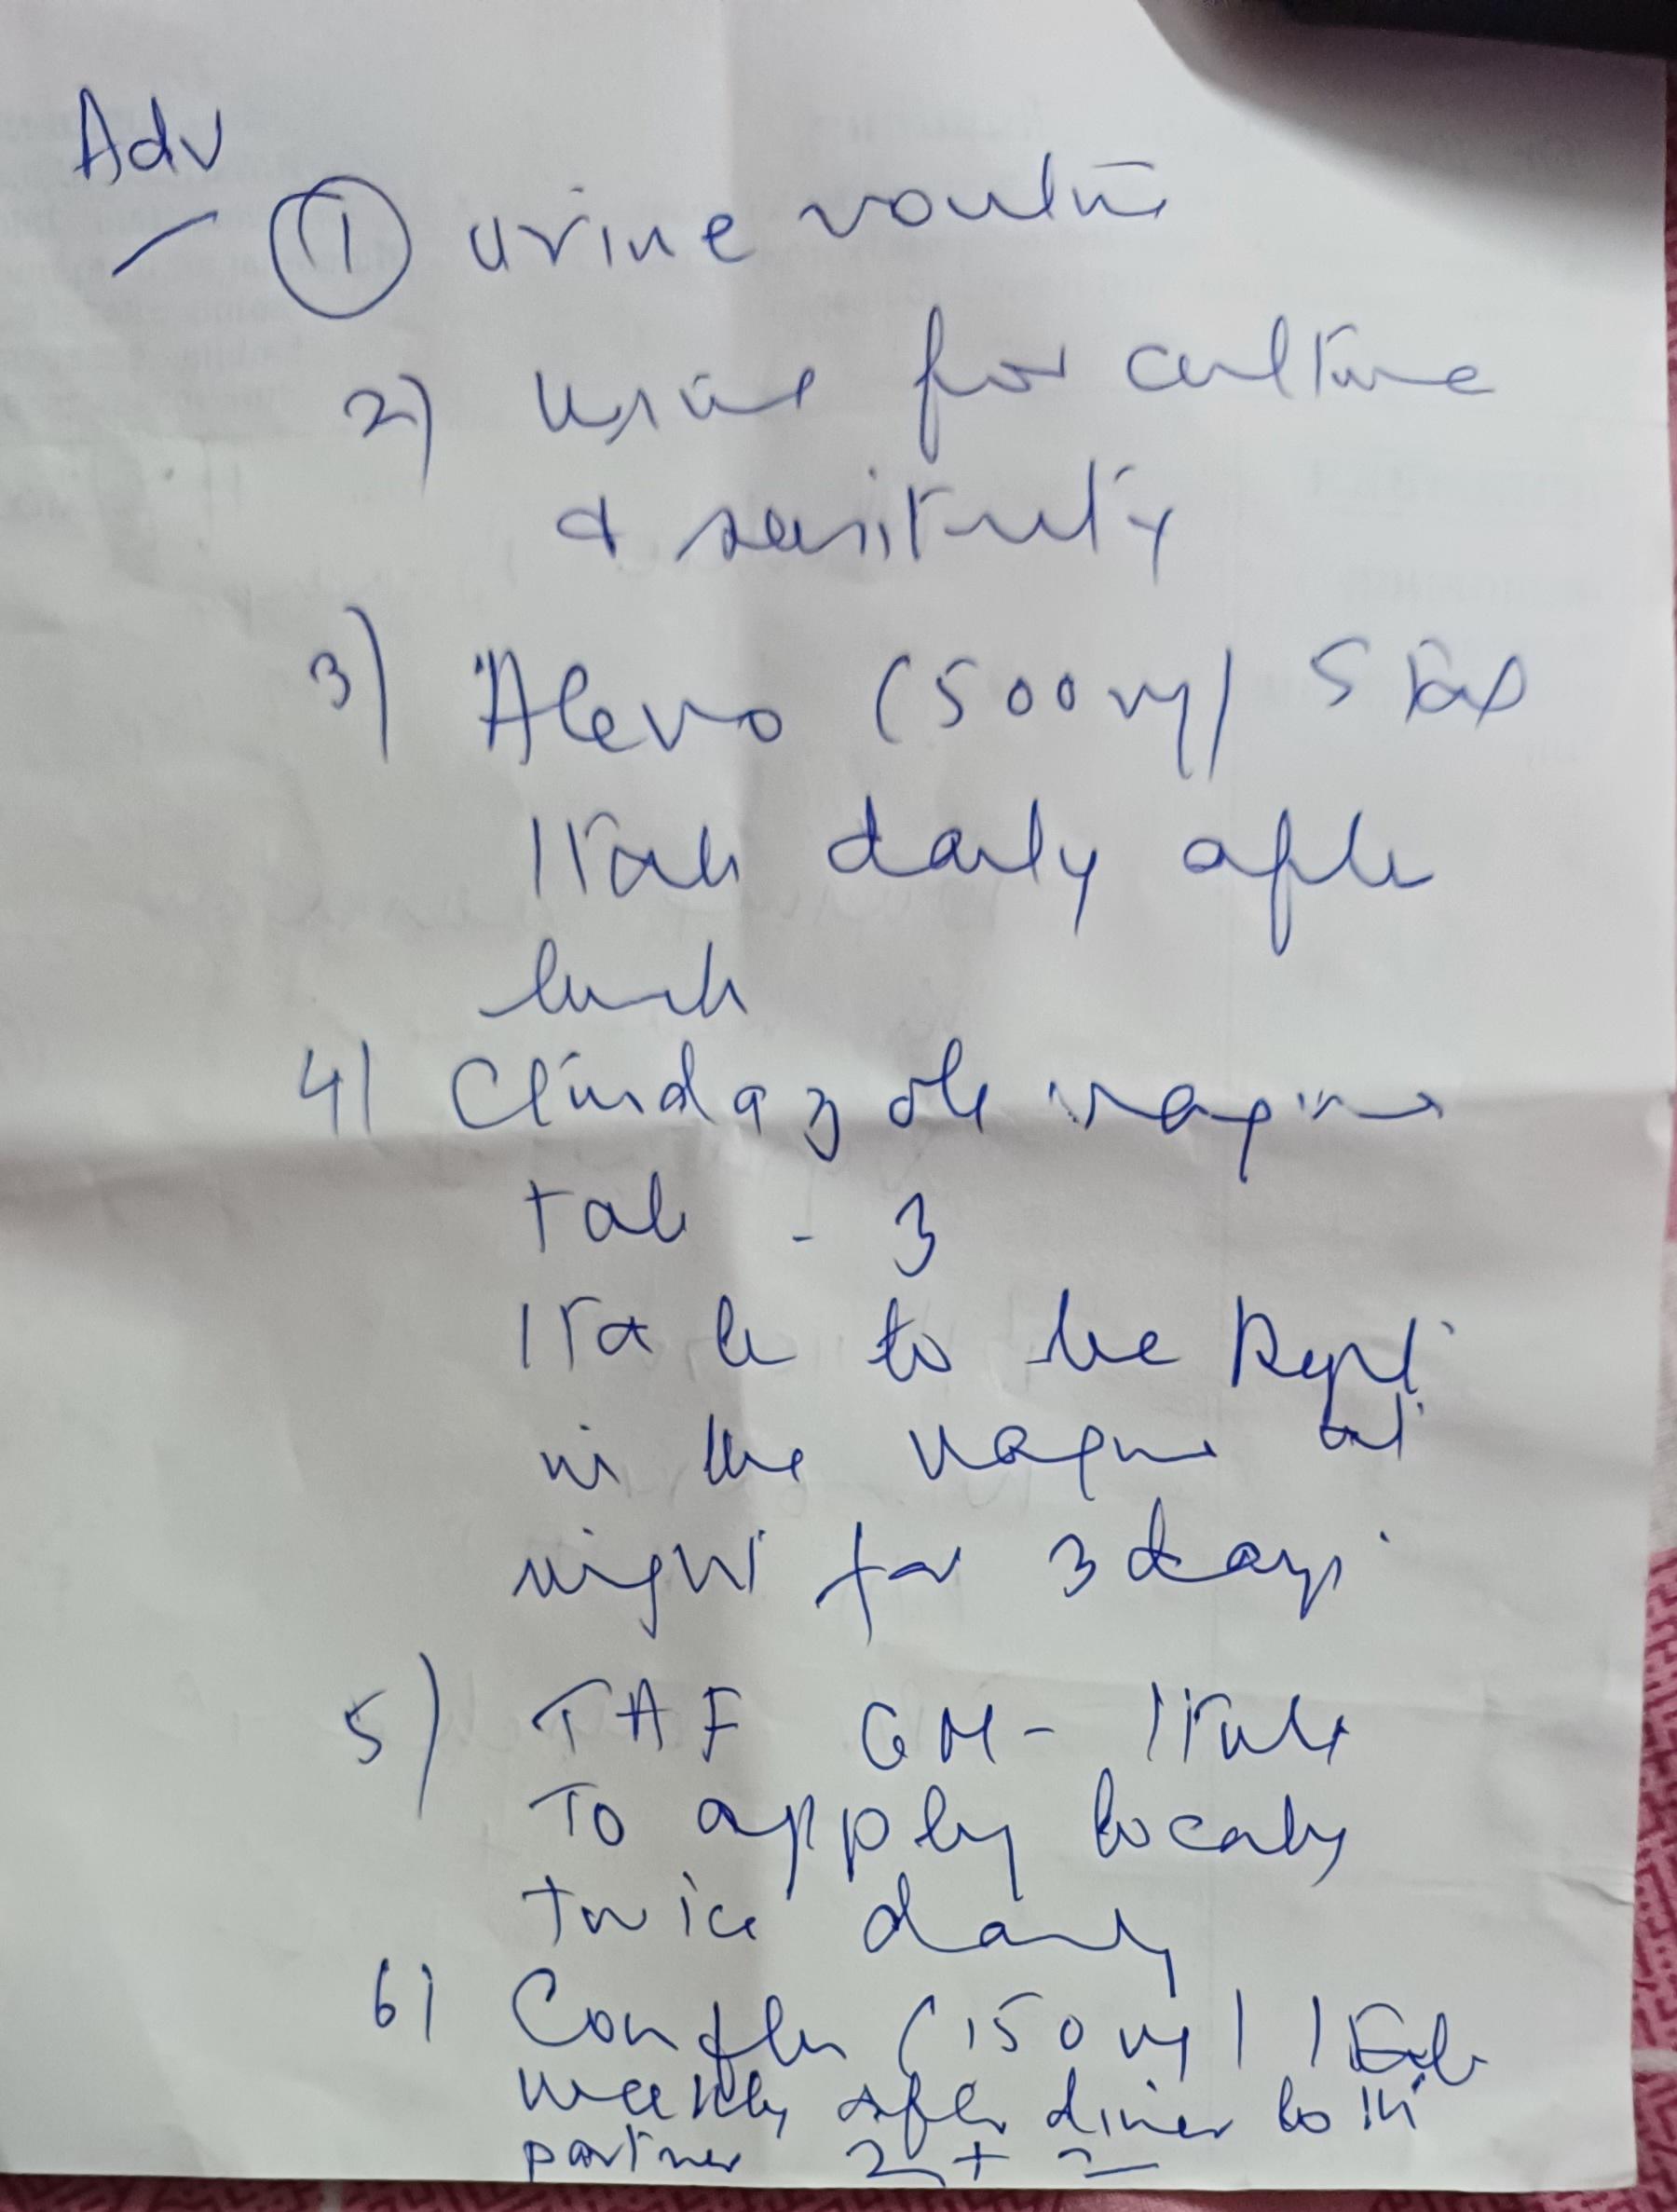 Adv
① urine routine
2) urine for culture
& sensitivity
3) Alevo (500mg) 5 tab
1 tab daily after
lunch
4) Clindazole vagina
tab - 3
1 tab to be kept
in the vagina at
night for 3 days
5) TAF GM - 1 tube
To apply localy
twice daily
6) Conflu (150mg) 1 tab
weekly after diner both
partner 2 + 2